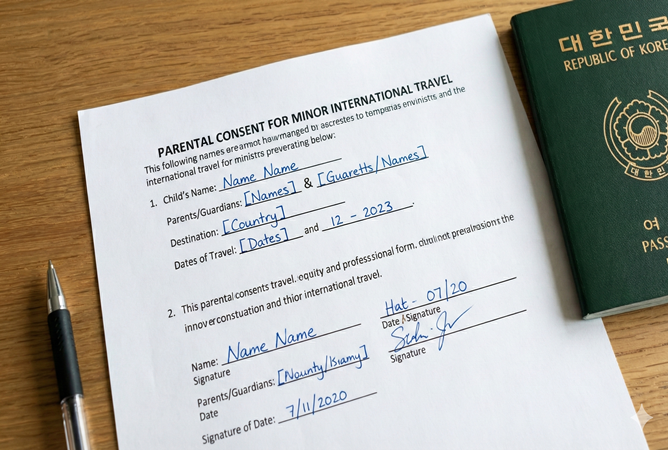 PARENTAL CONSENT FOR MINOR INTERNATIONAL TRAVEL
This following names are amot to ascrestes to and the
international travel for below:
1. Child's Name: Name Name
Parents/Guardians: [Names] & [Guaretts/Names]
Destination: [Country]
Dates of Travel: [Dates] and 12 - 2023.
2. This parental consents travel, equity and professional form, the
and thior international travel.
Name: Name Name
Signature
Parents/Guardians: [Nounty/Isiamy]
Date
Signature of Date: 7/11/2020
Hat - 07/20
Date Signature
Signature
대한민국
REPUBLIC OF KORE
대한민
여
PASS